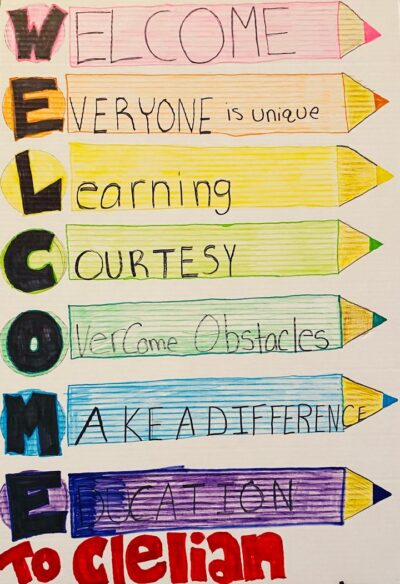 WELCOME
EVERYONE is unique
Learning
COURTESY
OverCome Obstacles
MAKE A DIFFERENCE
EDUCATION
To Clelian